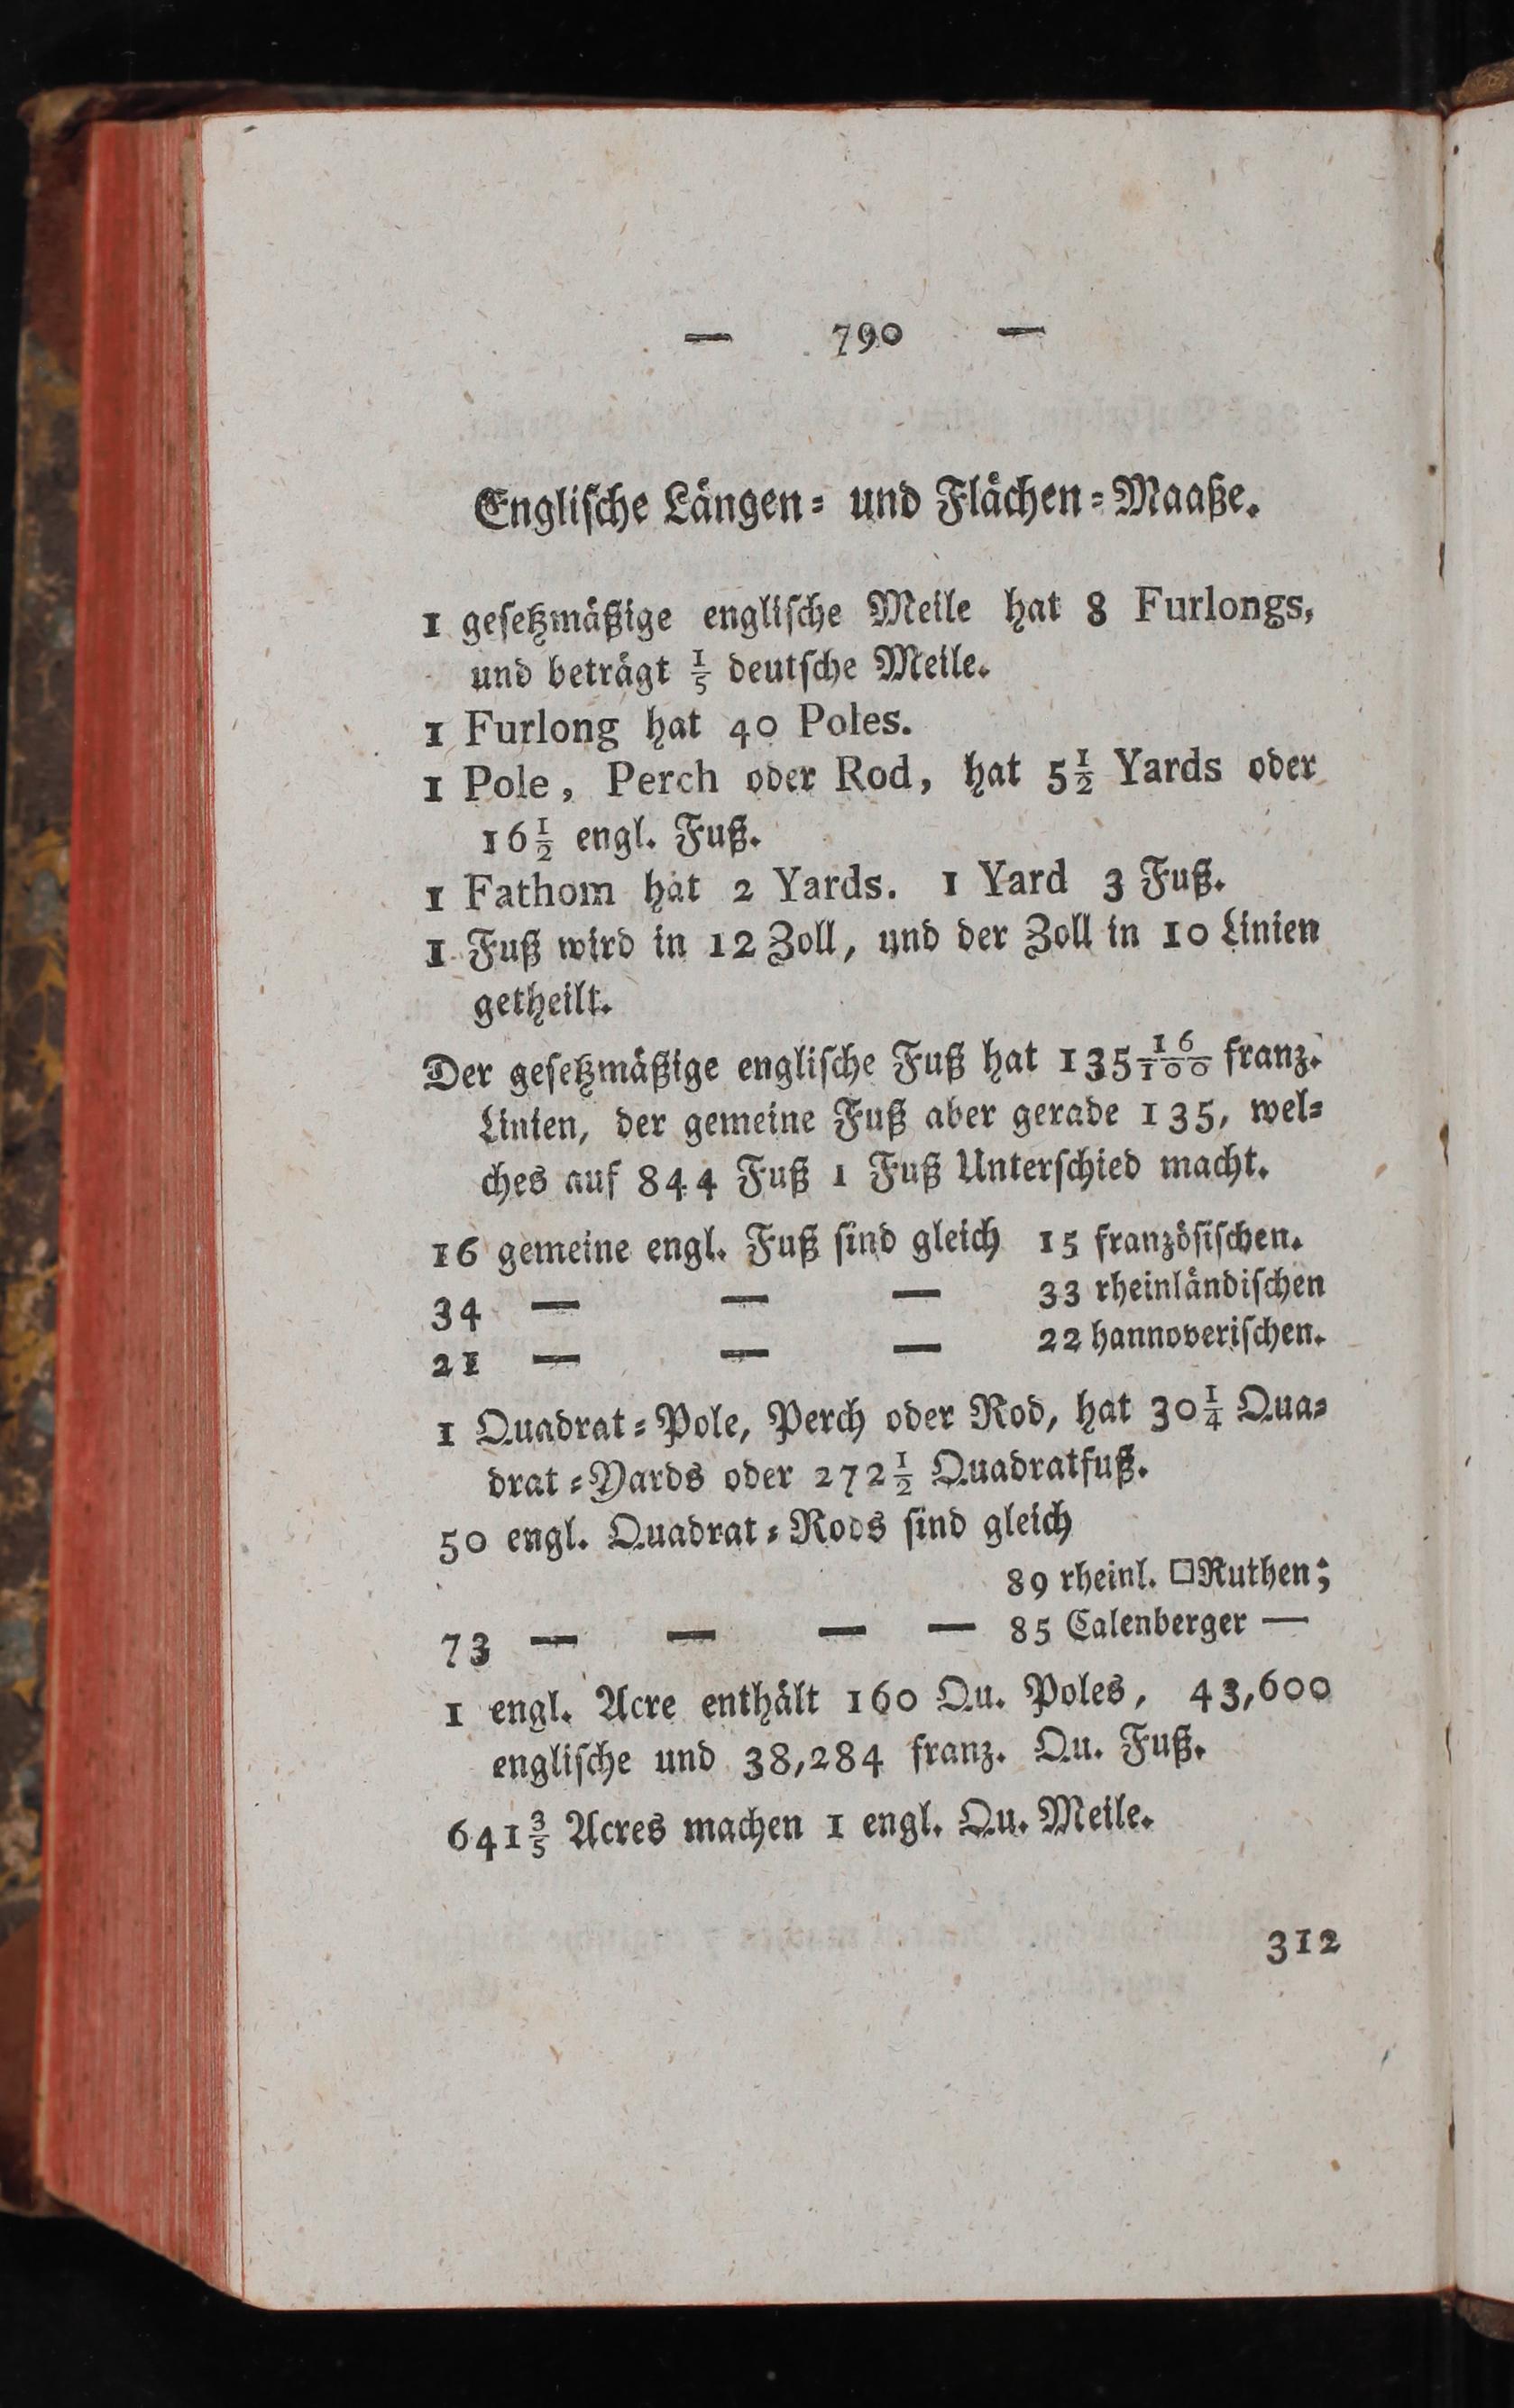 — 790 —
Engliſche Längen⸗ und Flächen⸗Maaße.
1 geſetzmäßige engliſche Meile hat 8 Furlongs,
und beträgt 1/5 deutſche Meile.
1 Furlong hat 40 Poles.
1 Pole, Perch oder Rod, hat 5 1/2 Yards oder
16 1/2 engl. Fuß.
1 Fathom hat 2 Yards. 1 Yard 3 Fuß.
1 Fuß wird in 12 Zoll, und der Zoll in 10 Linien
getheilt.
Der geſetzmäßige engliſche Fuß hat 135 16/100 franz.
Linien, der gemeine Fuß aber gerade 135, wel⸗
ches auf 844 Fuß 1 Fuß Unterſchied macht.
16 gemeine engl. Fuß ſind gleich 15 franzöſiſchen.
34 — — — 33 rheinländiſchen
21 — — — 22 hannoveriſchen.
1 Quadrat⸗Pole, Perch oder Rod, hat 30 1/4 Qua⸗
drat⸗Yards oder 272 1/2 Quadratfuß.
50 engl. Quadrat⸗Rods ſind gleich
89 rheinl. □Ruthen;
73 — — — — 85 Calenberger —
1 engl. Acre enthält 160 Qu. Poles, 43,600
engliſche und 38,284 franz. Qu. Fuß.
641 3/5 Acres machen 1 engl. Qu. Meile.
312